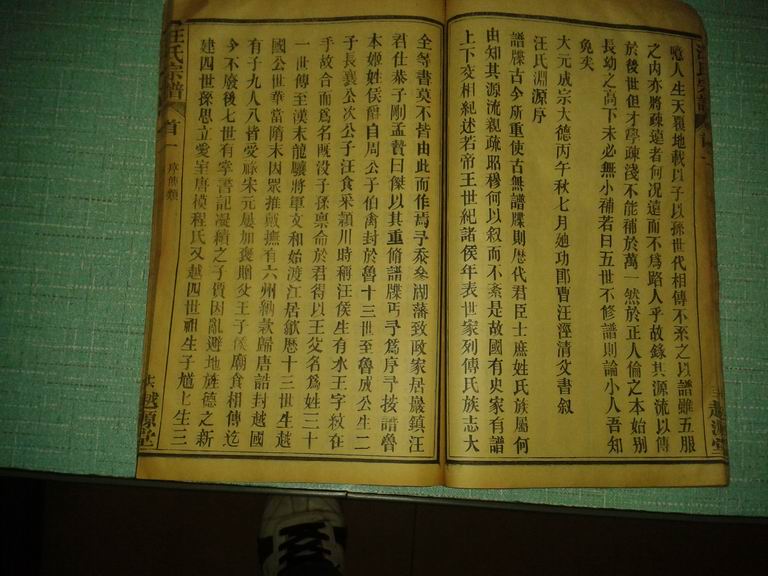 噫人生天覆地載以子以孫世代相傳不系之以譜雖五服
之內亦將疎遠者何况遠而不爲路人乎故錄其源流以傳
於後世但才學疎淺不能補於萬一然於正人倫之本始别
長幼之高下未必無小補若曰五世不修譜則論小人吾知
免矣
大元成宗大德丙午秋七月廸功郎曹汪涇清父書叙
汪氏淵源序
譜牒古今所重使古無譜牒則歷代君臣士庶姓氏族屬何
由知其源流親疏昭穆何以叙而不紊是故國有史家有譜
上下交相紀述若帝王世紀諸侯年表世家列傳氏族志大
全等書莫不皆由此而作焉予忝叅湖藩致政家居嚴鎮汪
君仕恭子剛孟贊曰傑以其重脩譜牒丐予爲序予按譜魯
本姬姓侯爵自周公子伯禽封於魯十三世至魯成公生二
子長襄公次公子汪食采潁川時稱汪侯生有水王字紋在
手故合而爲名既没子孫禀命於君得以王父名爲姓三十
一世傳至漢末龍驤將軍文和始渡江居歙歷十三世生越
國公世華當隋末因衆推戴撫有六州納欵歸唐誥封越國
有子九人八皆愛祿宋元屢加褒贈父王子侯廟食相傳迄
今不廢後七世有宰書記凝績之子質因亂避地旌德之新
建四世孫思立愛宣唐模程氏又越四世祖生子馗馗生三
汪氏宗譜
首一
序
越源堂